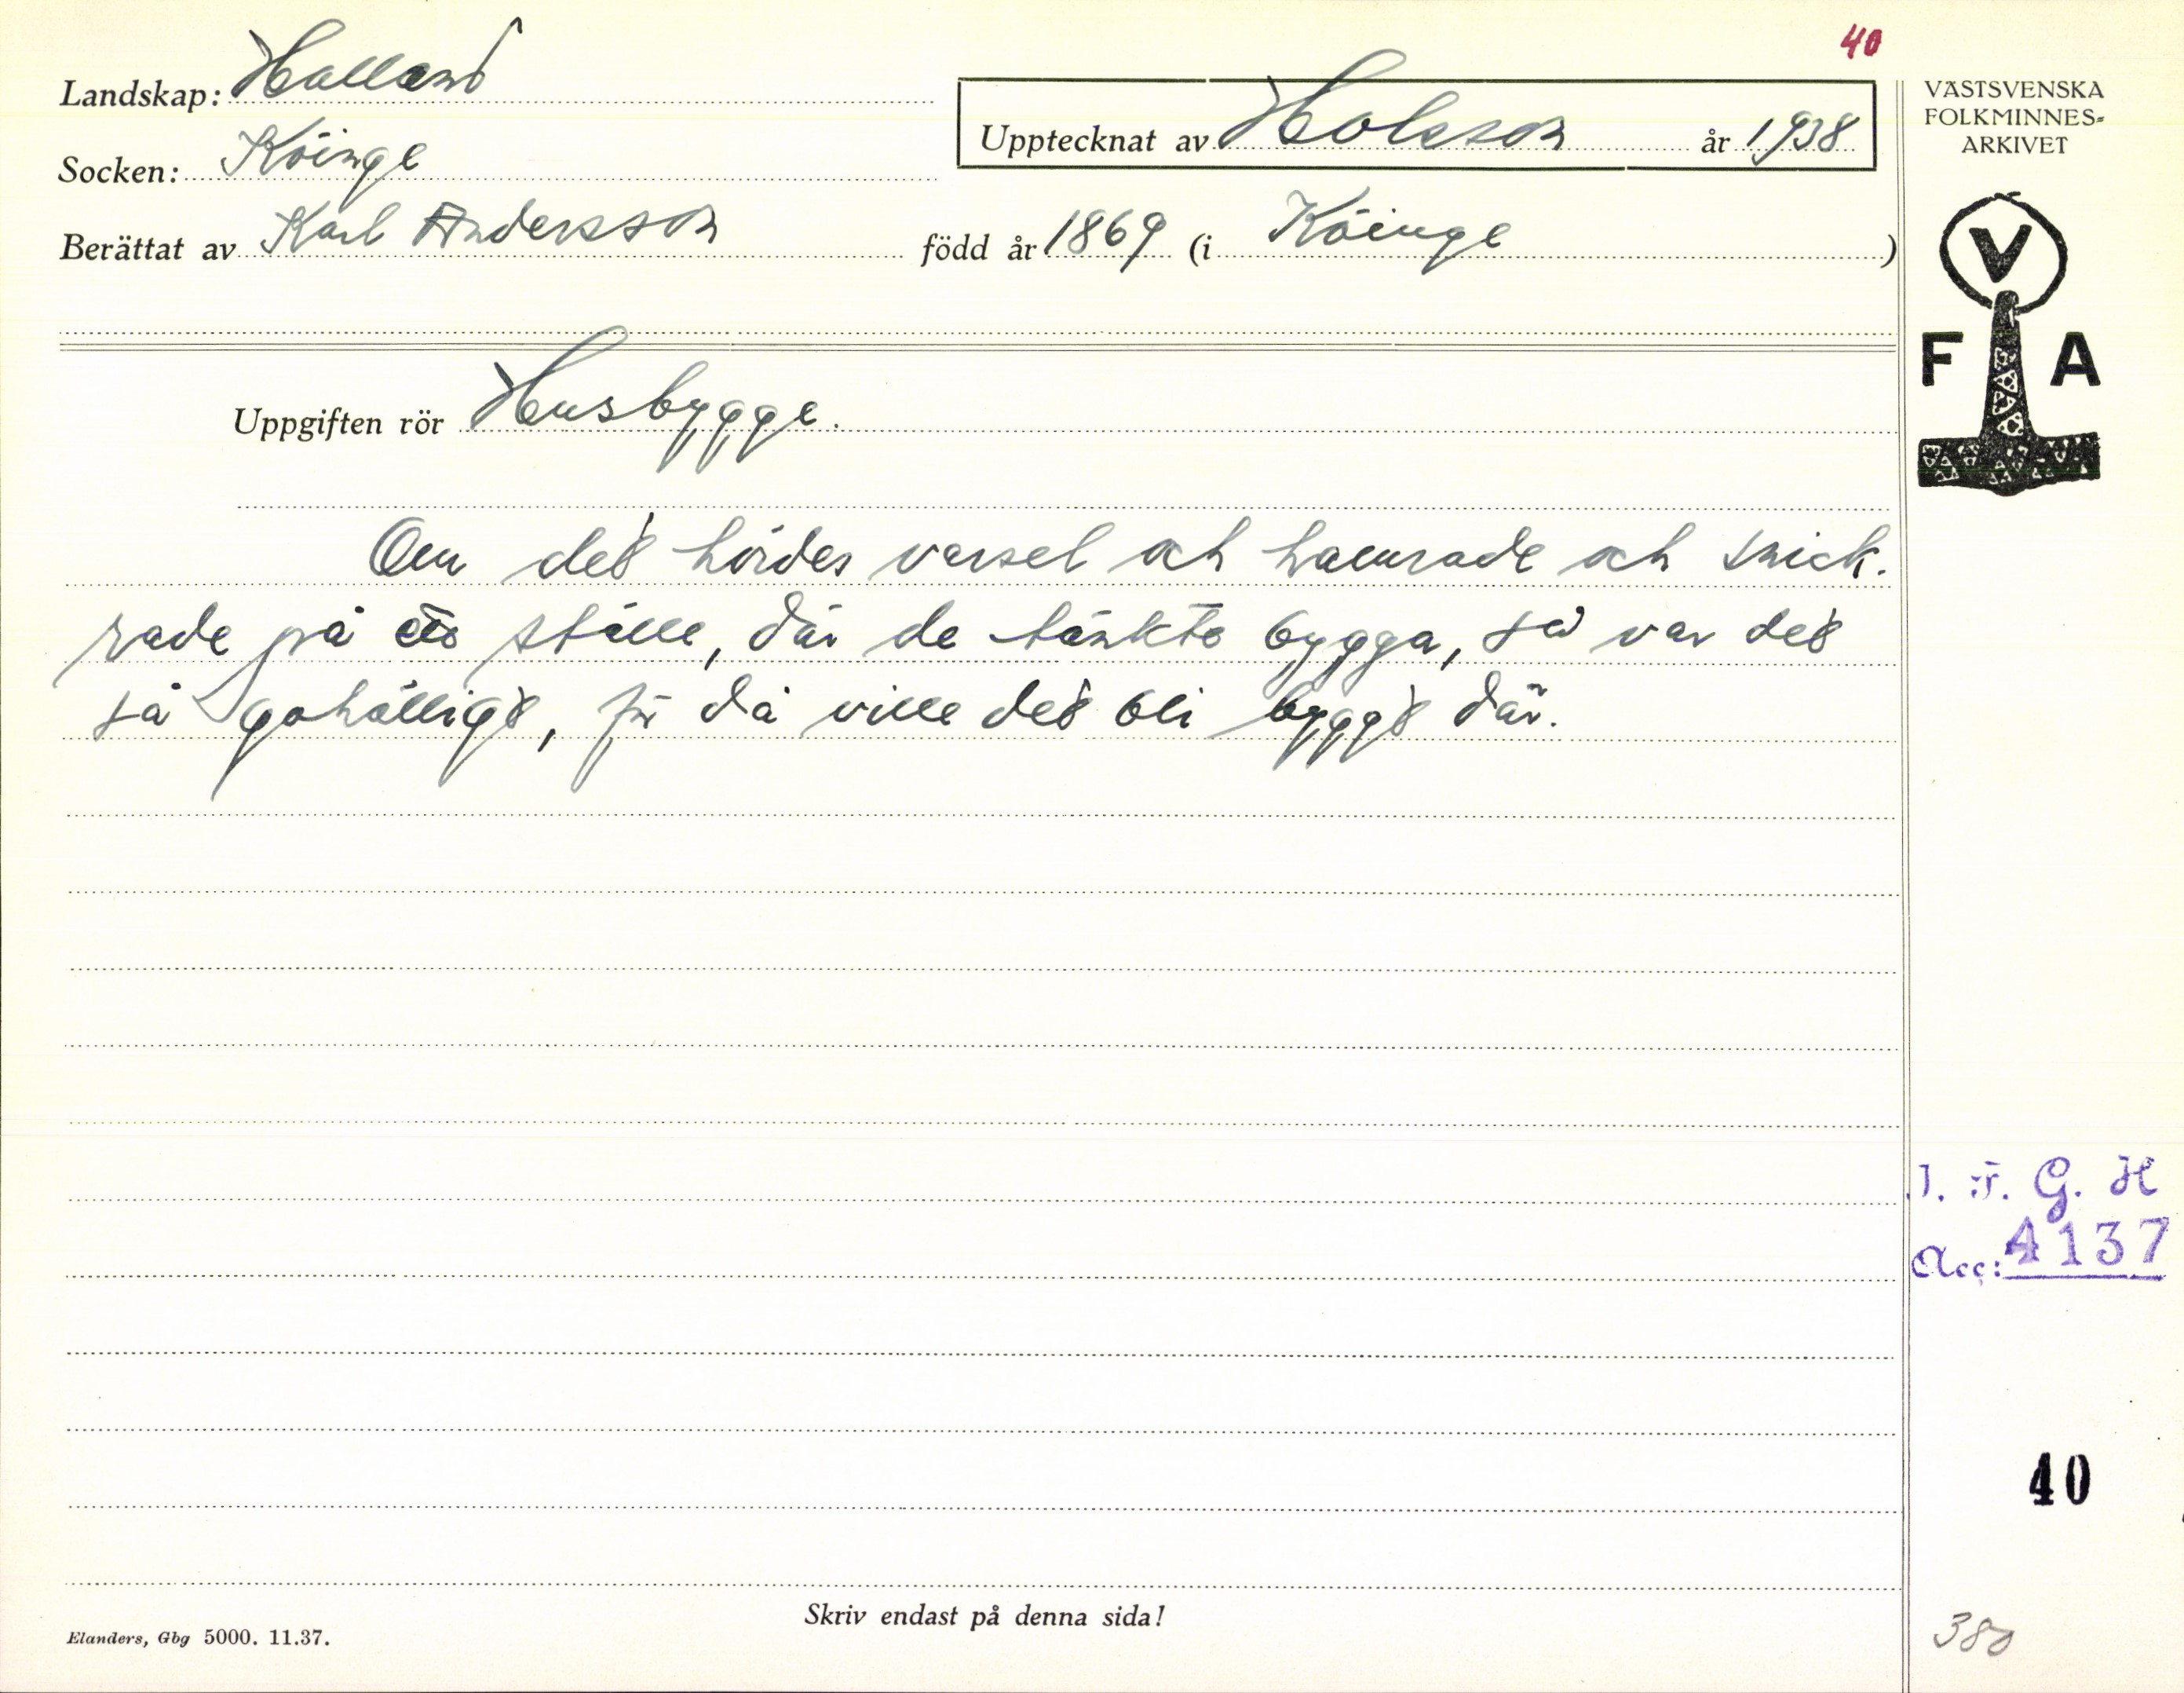 40
Landskap: Halland
Upptecknat av Holsson år 1938
Socken: Köinge
Berättat av Karl Andersson född år 1869 (i Köinge)
VÄSTSVENSKA
FOLKMINNES-
ARKIVET
V
F A
Uppgiften rör Husbygge.
Om det hördes varsel och hamrade och snick-
rade på ett ställe, där de tänkte bygga, så var det
så gohälligt, för då ville det bli byggt där.
I. F. G. H
Acc: 4137
40
Skriv endast på denna sida!
Elanders, Gbg 5000. 11.37.
380